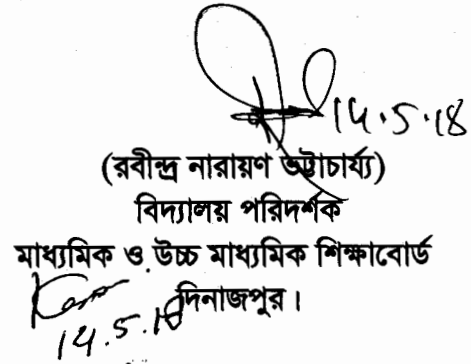 14.5.18
(রবীন্দ্র নারায়ণ ভট্টাচার্য্য)
বিদ্যালয় পরিদর্শক
মাধ্যমিক ও উচ্চ মাধ্যমিক শিক্ষাবোর্ড
দিনাজপুর।
14.5.18